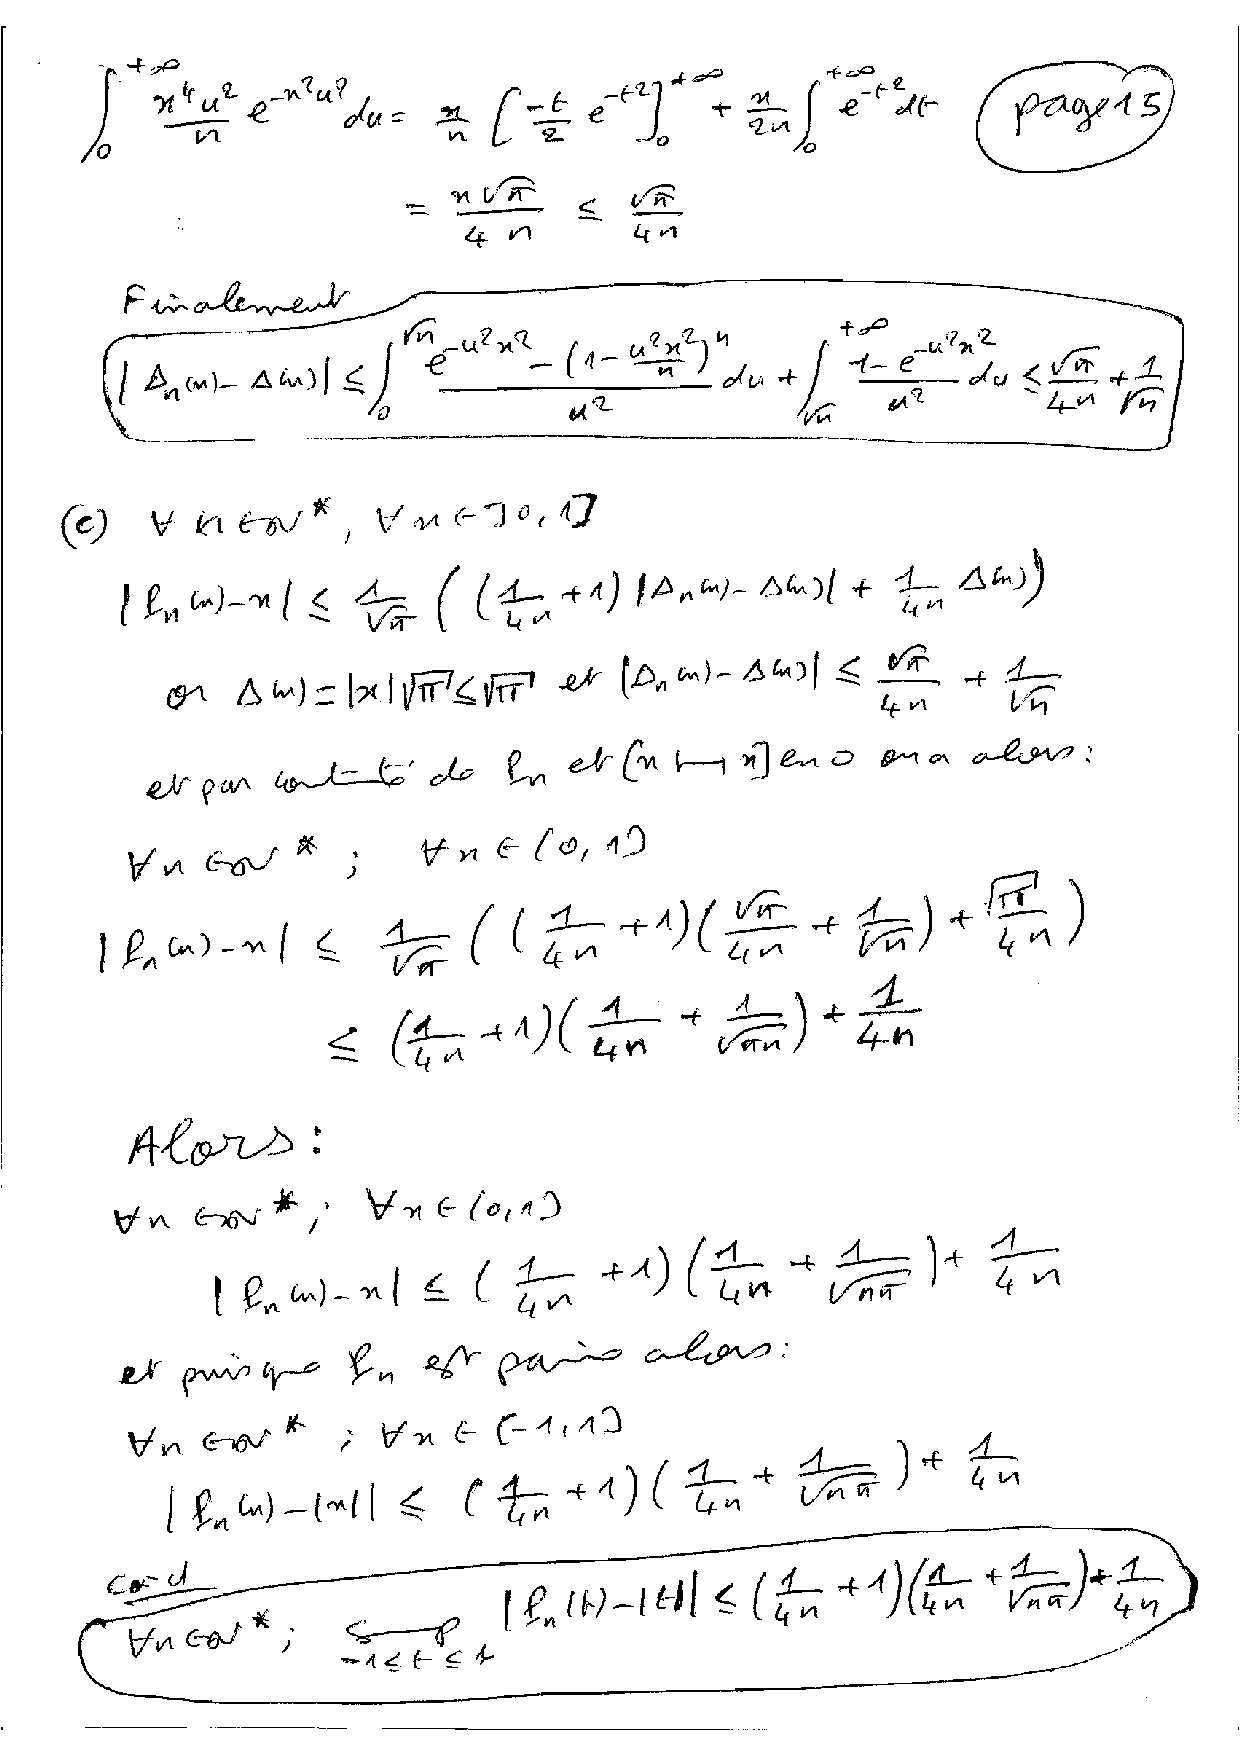 ∫₀^{+∞} (x⁴u²/n) e^{-x²u²} du = (x/n) [-(t/2) e^{-t²}]₀^{+∞} + (x/2n) ∫₀^{+∞} e^{-t²} dt page 15
= x√π/(4n) ≤ √π/(4n)
Finalement
|Δₙ(x) - Δ(x)| ≤ ∫₀^{√n} (e^{-u²x²} - (1 - u²x²/n)ⁿ)/u² du + ∫_{√n}^{+∞} (1 - e^{-u²x²})/u² du ≤ √π/(4n) + 1/√n
(c) ∀ n ∈ ℕ*, ∀ x ∈ ]0, 1]
|fₙ(x) - x| ≤ (1/√π) ((1/(4n) + 1) |Δₙ(x) - Δ(x)| + (1/(4n)) Δ(x))
or Δ(x) = |x|√π ≤ √π et |Δₙ(x) - Δ(x)| ≤ √π/(4n) + 1/√n
et par continuité de fₙ et [x ↦ x] en 0 on a alors :
∀ n ∈ ℕ* ; ∀ x ∈ [0, 1]
|fₙ(x) - x| ≤ (1/√π) ((1/(4n) + 1)(√π/(4n) + 1/√n) + √π/(4n))
≤ (1/(4n) + 1)(1/(4n) + 1/√(πn)) + 1/(4n)
Alors :
∀ n ∈ ℕ* ; ∀ x ∈ [0, 1]
|fₙ(x) - x| ≤ (1/(4n) + 1)(1/(4n) + 1/√(nπ)) + 1/(4n)
et puisque fₙ est paire alors :
∀ n ∈ ℕ* ; ∀ x ∈ [-1, 1]
|fₙ(x) - |x|| ≤ (1/(4n) + 1)(1/(4n) + 1/√(nπ)) + 1/(4n)
Concl
∀ n ∈ ℕ* ; sup_{-1≤t≤1} |fₙ(t) - |t|| ≤ (1/(4n) + 1)(1/(4n) + 1/√(nπ)) + 1/(4n)